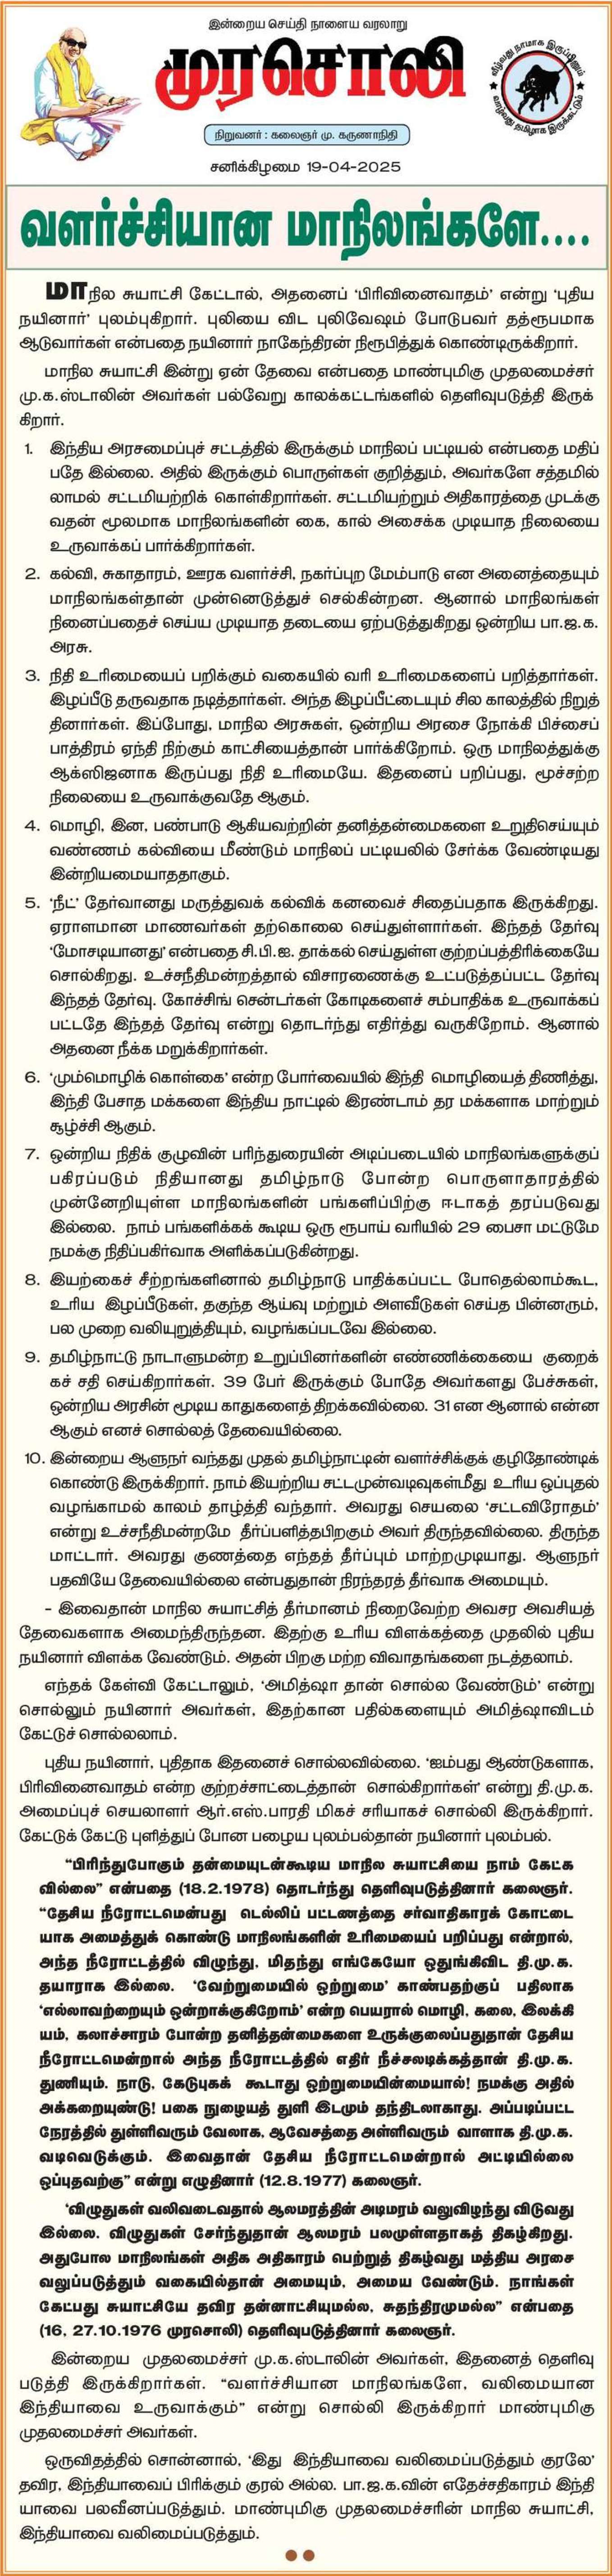 இன்றைய செய்தி நாளைய வரலாறு
முரசொலி
வீழ்வது நாமாக இருப்பினும்
வாழ்வது தமிழாக இருக்கட்டும்
நிறுவனர் : கலைஞர் மு. கருணாநிதி
சனிக்கிழமை 19-04-2025
வளர்ச்சியான மாநிலங்களே....
மாநில சுயாட்சி கேட்டால், அதனைப் ‘பிரிவினைவாதம்’ என்று ‘புதிய
நயினார்’ புலம்புகிறார். புலியை விட புலிவேஷம் போடுபவர் தத்ரூபமாக
ஆடுவார்கள் என்பதை நயினார் நாகேந்திரன் நிரூபித்துக் கொண்டிருக்கிறார்.
மாநில சுயாட்சி இன்று ஏன் தேவை என்பதை மாண்புமிகு முதலமைச்சர்
மு.க.ஸ்டாலின் அவர்கள் பல்வேறு காலக்கட்டங்களில் தெளிவுபடுத்தி இருக்
கிறார்.
1. இந்திய அரசமைப்புச் சட்டத்தில் இருக்கும் மாநிலப் பட்டியல் என்பதை மதிப்
பதே இல்லை. அதில் இருக்கும் பொருள்கள் குறித்தும், அவர்களே சத்தமில்
லாமல் சட்டமியற்றிக் கொள்கிறார்கள். சட்டமியற்றும் அதிகாரத்தை முடக்கு
வதன் மூலமாக மாநிலங்களின் கை, கால் அசைக்க முடியாத நிலையை
உருவாக்கப் பார்க்கிறார்கள்.
2. கல்வி, சுகாதாரம், ஊரக வளர்ச்சி, நகர்ப்புற மேம்பாடு என அனைத்தையும்
மாநிலங்கள்தான் முன்னெடுத்துச் செல்கின்றன. ஆனால் மாநிலங்கள்
நினைப்பதைச் செய்ய முடியாத தடையை ஏற்படுத்துகிறது ஒன்றிய பா.ஜ.க.
அரசு.
3. நிதி உரிமையைப் பறிக்கும் வகையில் வரி உரிமைகளைப் பறித்தார்கள்.
இழப்பீடு தருவதாக நடித்தார்கள். அந்த இழப்பீட்டையும் சில காலத்தில் நிறுத்
தினார்கள். இப்போது, மாநில அரசுகள், ஒன்றிய அரசை நோக்கி பிச்சைப்
பாத்திரம் ஏந்தி நிற்கும் காட்சியைத்தான் பார்க்கிறோம். ஒரு மாநிலத்துக்கு
ஆக்ஸிஜனாக இருப்பது நிதி உரிமையே. இதனைப் பறிப்பது, மூச்சற்ற
நிலையை உருவாக்குவதே ஆகும்.
4. மொழி, இன, பண்பாடு ஆகியவற்றின் தனித்தன்மைகளை உறுதிசெய்யும்
வண்ணம் கல்வியை மீண்டும் மாநிலப் பட்டியலில் சேர்க்க வேண்டியது
இன்றியமையாததாகும்.
5. ‘நீட்’ தேர்வானது மருத்துவக் கல்விக் கனவைச் சிதைப்பதாக இருக்கிறது.
ஏராளமான மாணவர்கள் தற்கொலை செய்துள்ளார்கள். இந்தத் தேர்வு
‘மோசடியானது’ என்பதை சி.பி.ஐ. தாக்கல் செய்துள்ள குற்றப்பத்திரிக்கையே
சொல்கிறது. உச்சநீதிமன்றத்தால் விசாரணைக்கு உட்படுத்தப்பட்ட தேர்வு
இந்தத் தேர்வு. கோச்சிங் சென்டர்கள் கோடிகளைச் சம்பாதிக்க உருவாக்கப்
பட்டதே இந்தத் தேர்வு என்று தொடர்ந்து எதிர்த்து வருகிறோம். ஆனால்
அதனை நீக்க மறுக்கிறார்கள்.
6. ‘மும்மொழிக் கொள்கை’ என்ற போர்வையில் இந்தி மொழியைத் திணித்து,
இந்தி பேசாத மக்களை இந்திய நாட்டில் இரண்டாம் தர மக்களாக மாற்றும்
சூழ்ச்சி ஆகும்.
7. ஒன்றிய நிதிக் குழுவின் பரிந்துரையின் அடிப்படையில் மாநிலங்களுக்குப்
பகிரப்படும் நிதியானது தமிழ்நாடு போன்ற பொருளாதாரத்தில்
முன்னேறியுள்ள மாநிலங்களின் பங்களிப்பிற்கு ஈடாகத் தரப்படுவது
இல்லை. நாம் பங்களிக்கக் கூடிய ஒரு ரூபாய் வரியில் 29 பைசா மட்டுமே
நமக்கு நிதிப்பகிர்வாக அளிக்கப்படுகின்றது.
8. இயற்கைச் சீற்றங்களினால் தமிழ்நாடு பாதிக்கப்பட்ட போதெல்லாம்கூட,
உரிய இழப்பீடுகள், தகுந்த ஆய்வு மற்றும் அளவீடுகள் செய்த பின்னரும்,
பல முறை வலியுறுத்தியும், வழங்கப்படவே இல்லை.
9. தமிழ்நாட்டு நாடாளுமன்ற உறுப்பினர்களின் எண்ணிக்கையை குறைக்
கச் சதி செய்கிறார்கள். 39 பேர் இருக்கும் போதே அவர்களது பேச்சுகள்,
ஒன்றிய அரசின் மூடிய காதுகளைத் திறக்கவில்லை. 31 என ஆனால் என்ன
ஆகும் எனச் சொல்லத் தேவையில்லை.
10. இன்றைய ஆளுநர் வந்தது முதல் தமிழ்நாட்டின் வளர்ச்சிக்குக் குழிதோண்டிக்
கொண்டு இருக்கிறார். நாம் இயற்றிய சட்டமுன்வடிவுகள்மீது உரிய ஒப்புதல்
வழங்காமல் காலம் தாழ்த்தி வந்தார். அவரது செயலை ‘சட்டவிரோதம்’
என்று உச்சநீதிமன்றமே தீர்ப்பளித்தபிறகும் அவர் திருந்தவில்லை. திருந்த
மாட்டார். அவரது குணத்தை எந்தத் தீர்ப்பும் மாற்றமுடியாது. ஆளுநர்
பதவியே தேவையில்லை என்பதுதான் நிரந்தரத் தீர்வாக அமையும்.
- இவைதான் மாநில சுயாட்சித் தீர்மானம் நிறைவேற்ற அவசர அவசியத்
தேவைகளாக அமைந்திருந்தன. இதற்கு உரிய விளக்கத்தை முதலில் புதிய
நயினார் விளக்க வேண்டும். அதன் பிறகு மற்ற விவாதங்களை நடத்தலாம்.
எந்தக் கேள்வி கேட்டாலும், ‘அமித்ஷா தான் சொல்ல வேண்டும்’ என்று
சொல்லும் நயினார் அவர்கள், இதற்கான பதில்களையும் அமித்ஷாவிடம்
கேட்டுச் சொல்லலாம்.
புதிய நயினார், புதிதாக இதனைச் சொல்லவில்லை. ‘ஐம்பது ஆண்டுகளாக,
பிரிவினைவாதம் என்ற குற்றச்சாட்டைத்தான் சொல்கிறார்கள்’ என்று தி.மு.க.
அமைப்புச் செயலாளர் ஆர்.எஸ்.பாரதி மிகச் சரியாகச் சொல்லி இருக்கிறார்.
கேட்டுக் கேட்டு புளித்துப் போன பழைய புலம்பல்தான் நயினார் புலம்பல்.
“பிரிந்துபோகும் தன்மையுடன்கூடிய மாநில சுயாட்சியை நாம் கேட்க
வில்லை” என்பதை (18.2.1978) தொடர்ந்து தெளிவுபடுத்தினார் கலைஞர்.
“தேசிய நீரோட்டமென்பது டெல்லிப் பட்டணத்தை சர்வாதிகாரக் கோட்டை
யாக அமைத்துக் கொண்டு மாநிலங்களின் உரிமையைப் பறிப்பது என்றால்,
அந்த நீரோட்டத்தில் விழுந்து, மிதந்து எங்கேயோ ஒதுங்கிவிட தி.மு.க.
தயாராக இல்லை. ‘வேற்றுமையில் ஒற்றுமை’ காண்பதற்குப் பதிலாக
‘எல்லாவற்றையும் ஒன்றாக்குகிறோம்’ என்ற பெயரால் மொழி, கலை, இலக்கி
யம், கலாச்சாரம் போன்ற தனித்தன்மைகளை உருக்குலைப்பதுதான் தேசிய
நீரோட்டமென்றால் அந்த நீரோட்டத்தில் எதிர் நீச்சலடிக்கத்தான் தி.மு.க.
துணியும். நாடு, கேடுபுகக் கூடாது ஒற்றுமையின்மையால்! நமக்கு அதில்
அக்கறையுண்டு! பகை நுழையத் துளி இடமும் தந்திடலாகாது. அப்படிப்பட்ட
நேரத்தில் துள்ளிவரும் வேலாக, ஆவேசத்தை அள்ளிவரும் வாளாக தி.மு.க.
வடிவெடுக்கும். இவைதான் தேசிய நீரோட்டமென்றால் அட்டியில்லை
ஒப்புதவற்கு” என்று எழுதினார் (12.8.1977) கலைஞர்.
‘விழுதுகள் வலிவடைவதால் ஆலமரத்தின் அடிமரம் வலுவிழந்து விடுவது
இல்லை. விழுதுகள் சேர்ந்துதான் ஆலமரம் பலமுள்ளதாகத் திகழ்கிறது.
அதுபோல மாநிலங்கள் அதிக அதிகாரம் பெற்றுத் திகழ்வது மத்திய அரசை
வலுப்படுத்தும் வகையில்தான் அமையும், அமைய வேண்டும். நாங்கள்
கேட்பது சுயாட்சியே தவிர தன்னாட்சியுமல்ல, சுதந்திரமுமல்ல” என்பதை
(16, 27.10.1976 முரசொலி) தெளிவுபடுத்தினார் கலைஞர்.
இன்றைய முதலமைச்சர் மு.க.ஸ்டாலின் அவர்கள், இதனைத் தெளிவு
படுத்தி இருக்கிறார்கள். “வளர்ச்சியான மாநிலங்களே, வலிமையான
இந்தியாவை உருவாக்கும்” என்று சொல்லி இருக்கிறார் மாண்புமிகு
முதலமைச்சர் அவர்கள்.
ஒருவிதத்தில் சொன்னால், ‘இது இந்தியாவை வலிமைப்படுத்தும் குரலே’
தவிர, இந்தியாவைப் பிரிக்கும் குரல் அல்ல. பா.ஜ.க.வின் எதேச்சதிகாரம் இந்தி
யாவை பலவீனப்படுத்தும். மாண்புமிகு முதலமைச்சரின் மாநில சுயாட்சி,
இந்தியாவை வலிமைப்படுத்தும்.